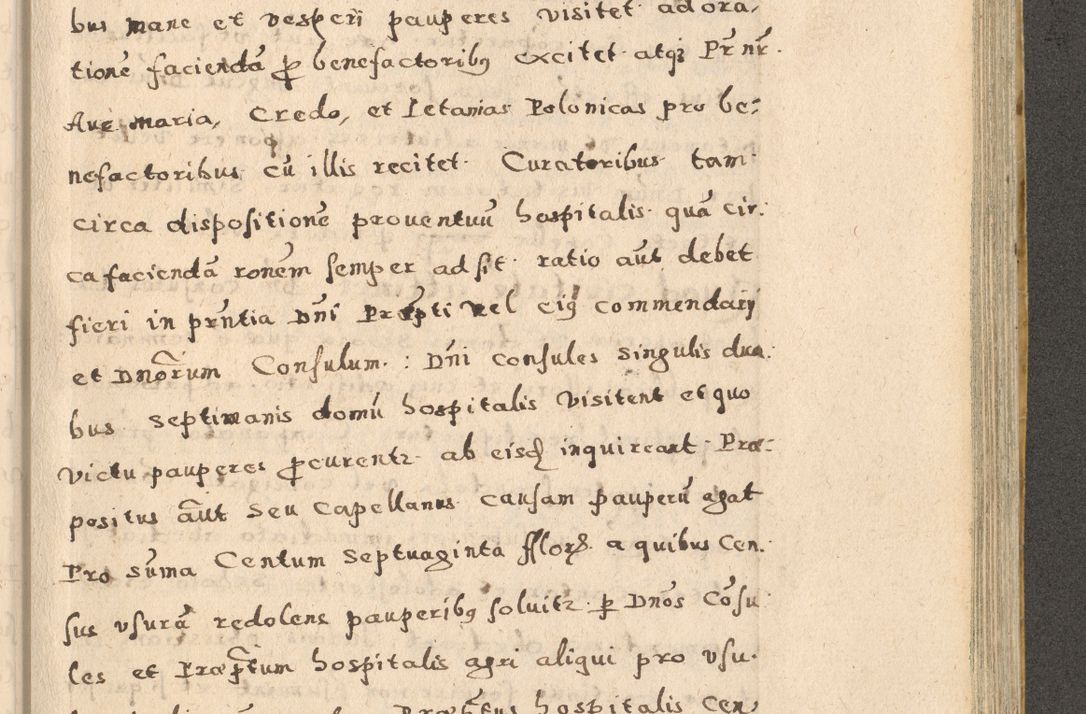 bus mane et vesperi pauperes visitet adora,
tionē faciendā ꝓ benefactoribꝰ excitet atqꝫ Pr̄ nr̄.
Aue maria, Credo, et Letanias Polonicas pro be:
nefactoribus cū illis recitet. Curatoribus tam
circa dispositionē prouentuū hospitalis quā cir:
ca faciendā ronēm semper adsit. ratio aūt debet
fieri in prn̄tia Dn̄i Præpti vel eiꝰ commendarij
et Dnōrum Consulum. : Dn̄i consules singulis dua:
bus septimanis domū hospitalis visitent et quo
victu pauperes ꝓcurentr ab eisd inquireant. Præ:
positus aūt seu Capellanus causam pauperū agat
Pro sūma Centum septuaginta fflor. a quibus Cen.
sus vsurā redolens pauperibꝰ soluitr ꝑ Dnōs Cōsu
les et Præptum hospitalis agri aliqui pro vsu.
hospitalis Cen,